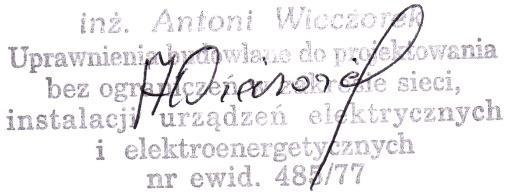 inż. Antoni Wieczorek
Uprawnienia budowlane do projektowania
bez ograniczeń w zakresie sieci,
instalacji urządzeń elektrycznych
i elektroenergetycznych
nr ewid. 485/77
AWieczorek